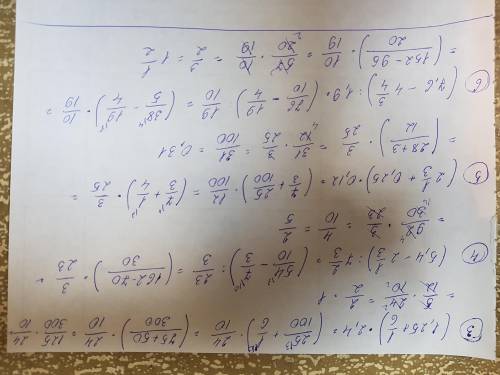 3 (1,25 + 1/6) · 2,4 = (25/100 + 1/6) · 24/10 = ((75+50)/300) · 24/10 = 125/300 · 24/10
= 5/12 · 24/10 = 2/2 = 1
4 (5,4 - 2 1/3) : 7 2/3 = (54/10 - 7/3) : 23/3 = ((162-70)/30) · 3/23 =
= 92/30 · 3/23 = 4/10 = 2/5
5 (2 1/3 + 0,25) · 0,12 = (7/3 + 25/100) · 12/100 = (7/3 + 1/4) · 3/25 =
= ((28+3)/12) · 3/25 = 31/12 · 3/25 = 31/100 = 0,31
6 (7,6 - 4 3/4) : 1,9 · (76/10 - 19/4) · 10/19 = (38/5 - 19/4) · 10/19 =
= ((152-95)/20) · 10/19 = 57/20 · 10/19 = 3/2 = 1 1/2